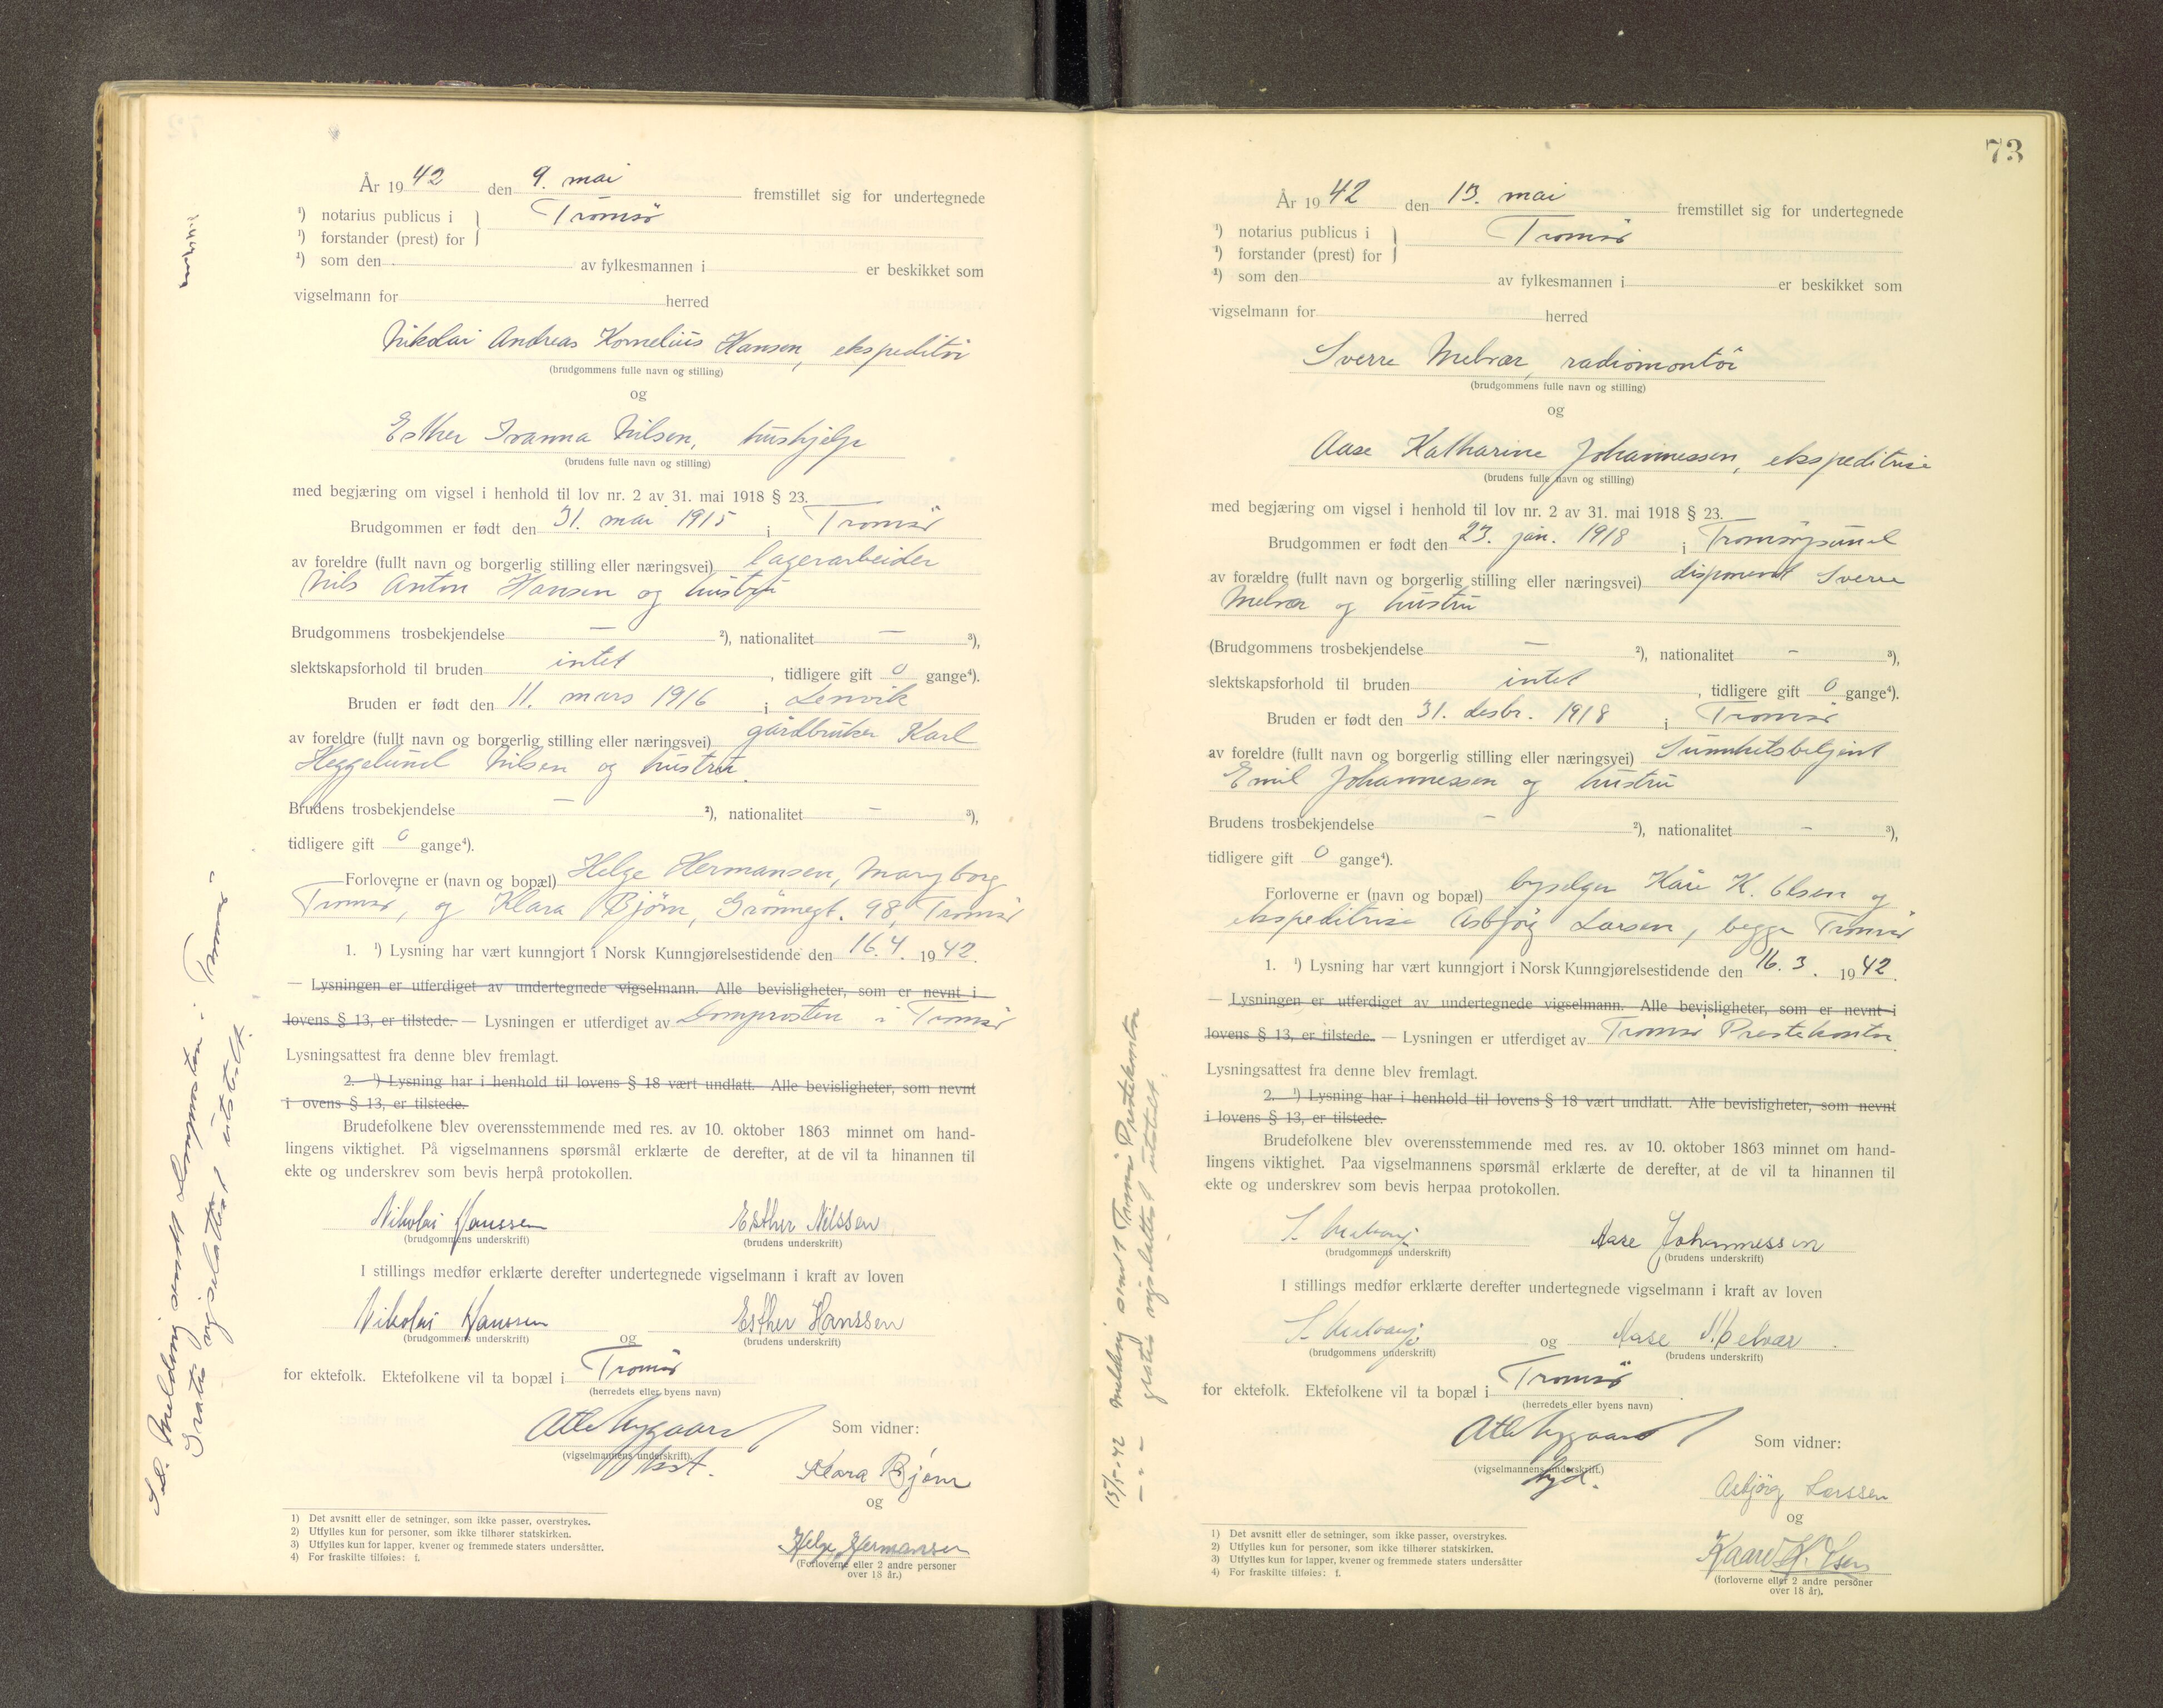 År 1942 den 9. mai fremstillet sig for undertegnede
¹) notarius publicus i } Tromsö
¹) forstander (prest) for
¹) som den av fylkesmannen i er beskikket som
vigselmann for herred
Nikolai Andreas Kornelius Hansen, ekspeditör
(brudgommens fulle navn og stilling)
og
Esther Ivanna Nilsen, hushjelp
(brudens fulle navn og stilling)
med begjæring om vigsel i henhold til lov nr. 2 av 31. mai 1918 § 23.
Brudgommen er født den 31. mai 1915 i Tromsö
av foreldre (fullt navn og borgerlig stilling eller næringsvei) lagerarbeider
Nils Anton Hansen og hustru
Brudgommens trosbekjendelse — ²), nationalitet — ³),
slektskapsforhold til bruden intet, tidligere gift 0 gange⁴).
Bruden er født den 11. mars 1916 i Lenvik
av foreldre (fullt navn og borgerlig stilling eller næringsvei) gårdbruker Karl
Heggelund Nilsen og hustru.
Brudens trosbekjendelse — ²), nationalitet — ³),
tidligere gift 0 gange⁴).
Forloverne er (navn og bopæl) Helge Hermansen, Maryborg
Tromsö, og Klara Bjørn, Grönnegt. 98, Tromsö
1. ¹) Lysning har vært kunngjort i Norsk Kunngjørelsestidende den 16.4. 1942.
— Lysningen er utferdiget av undertegnede vigselmann. Alle bevisligheter, som er nevnt i
lovens § 13, er tilstede. — Lysningen er utferdiget av Domprosten i Tromsö
Lysningsattest fra denne blev fremlagt.
2. ¹) Lysning har i henhold til lovens § 18 vært undlatt. Alle bevisligheter, som nevnt
i ovens § 13, er tilstede.
Brudefolkene blev overensstemmende med res. av 10. oktober 1863 minnet om hand-
lingens viktighet. På vigselmannens spørsmål erklærte de derefter, at de vil ta hinannen til
ekte og underskrev som bevis herpå protokollen.
Nikolai Hanssen Esther Nilssen
(brudgommens underskrift) (brudens underskrift)
I stillings medfør erklærte derefter undertegnede vigselmann i kraft av loven
Nikolai Hanssen og Esther Hanssen
(brudgommens underskrift) (brudens underskrift)
for ektefolk. Ektefolkene vil ta bopæl i Tromsö
(herredets eller byens navn)
Atle Nygaard Som vidner:
(vigselmannens underskrift)
Klara Bjørn
og
Helge Hermansen
(Forloverne eller 2 andre personer
over 18 år.)
1) Det avsnitt eller de setninger, som ikke passer, overstrykes.
2) Utfylles kun for personer, som ikke tilhører statskirken.
3) Utfylles kun for lapper, kvener og fremmede staters undersåtter.
4) For fraskilte tilføies: f.
S.d. Melding sendt Domprosten i Tromsö
Gratis vigselattest utstedt.
73
År 1942 den 13. mai fremstillet sig for undertegnede
¹) notarius publicus i } Tromsö
¹) forstander (prest) for
¹) som den av fylkesmannen i er beskikket som
vigselmann for herred
Sverre Melvær, radiomontör
(brudgommens fulle navn og stilling)
og
Aase Katharine Johannessen, ekspeditrise
(brudens fulle navn og stilling)
med begjæring om vigsel i henhold til lov nr. 2 av 31. mai 1918 § 23.
Brudgommen er født den 23. jan. 1918 i Tromsöysund
av forældre (fullt navn og borgerlig stilling eller næringsvei) disponent Sverre
Melvær og hustru
(Brudgommens trosbekjendelse — ²), nationalitet — ³),
slektskapsforhold til bruden intet, tidligere gift 0 gange⁴).
Bruden er født den 31. desbr. 1918 i Tromsö
av foreldre (fullt navn og borgerlig stilling eller næringsvei) Sunnhetsbetjent
Emil Johannessen og hustru
Brudens trosbekjendelse — ²), nationalitet — ³),
tidligere gift 0 gange⁴).
Forloverne er (navn og bopæl) byselger Kåre K. Olsen og
ekspeditrise Asbjörg Larsen, begge Tromsö
1. ¹) Lysning har vært kunngjort i Norsk Kunngjørelsestidende den 16.3. 1942.
— Lysningen er utferdiget av undertegnede vigselmann. Alle bevisligheter, som er nevnt i
lovens § 13, er tilstede. — Lysningen er utferdiget av Tromsö Prestekontor
Lysningsattest fra denne blev fremlagt.
2. ¹) Lysning har i henhold til lovens § 18 vært undlatt. Alle bevisligheter, som nevnt
i lovens § 13, er tilstede.
Brudefolkene blev overensstemmende med res. av 10. oktober 1863 minnet om hand-
lingens viktighet. Paa vigselmannens spørsmål erklærte de derefter, at de vil ta hinannen til
ekte og underskrev som bevis herpaa protokollen.
S. Melvær Aase Johannessen
(brudgommens underskrift) (brudens underskrift)
I stillings medfør erklærte derefter undertegnede vigselmann i kraft av loven
S. Melvær og Aase Melvær.
(brudgommens underskrift) (brudens underskrift)
for ektefolk. Ektefolkene vil ta bopæl i Tromsö
(herredets eller byens navn)
Atle Nygaard Som vidner:
(vigselmannens underskrift.)
Asbjörg Larssen
og
Kaare K. Olsen
(forloverne eller 2 andre personer
over 18 år).
1) Det avsnitt eller de setninger, som ikke passer, overstrykes.
2) Utfylles kun for personer, som ikke tilhører statskirken.
3) Utfylles kun for lapper, kvener og fremmede staters undersåtter
4) For fraskilte tilføies: f.
13/5-42 Melding sendt Tromsö Prestekontor
— " — gratis vigselattest utstedt.